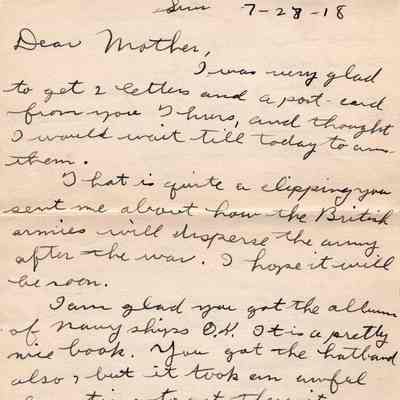 Sun 7-28-18
Dear Mother,
I was very glad
to get 2 letters and a post-card
from you Thurs, and thought
I would wait till today to ans.
them.
That is quite a clipping you
sent me about how the British
armies will disperse the army
after the war. I hope it will
be soon.
I am glad you got the album
of Navy ships O.K. It is a pretty
nice book. You got the hatband
also, but it took an awful